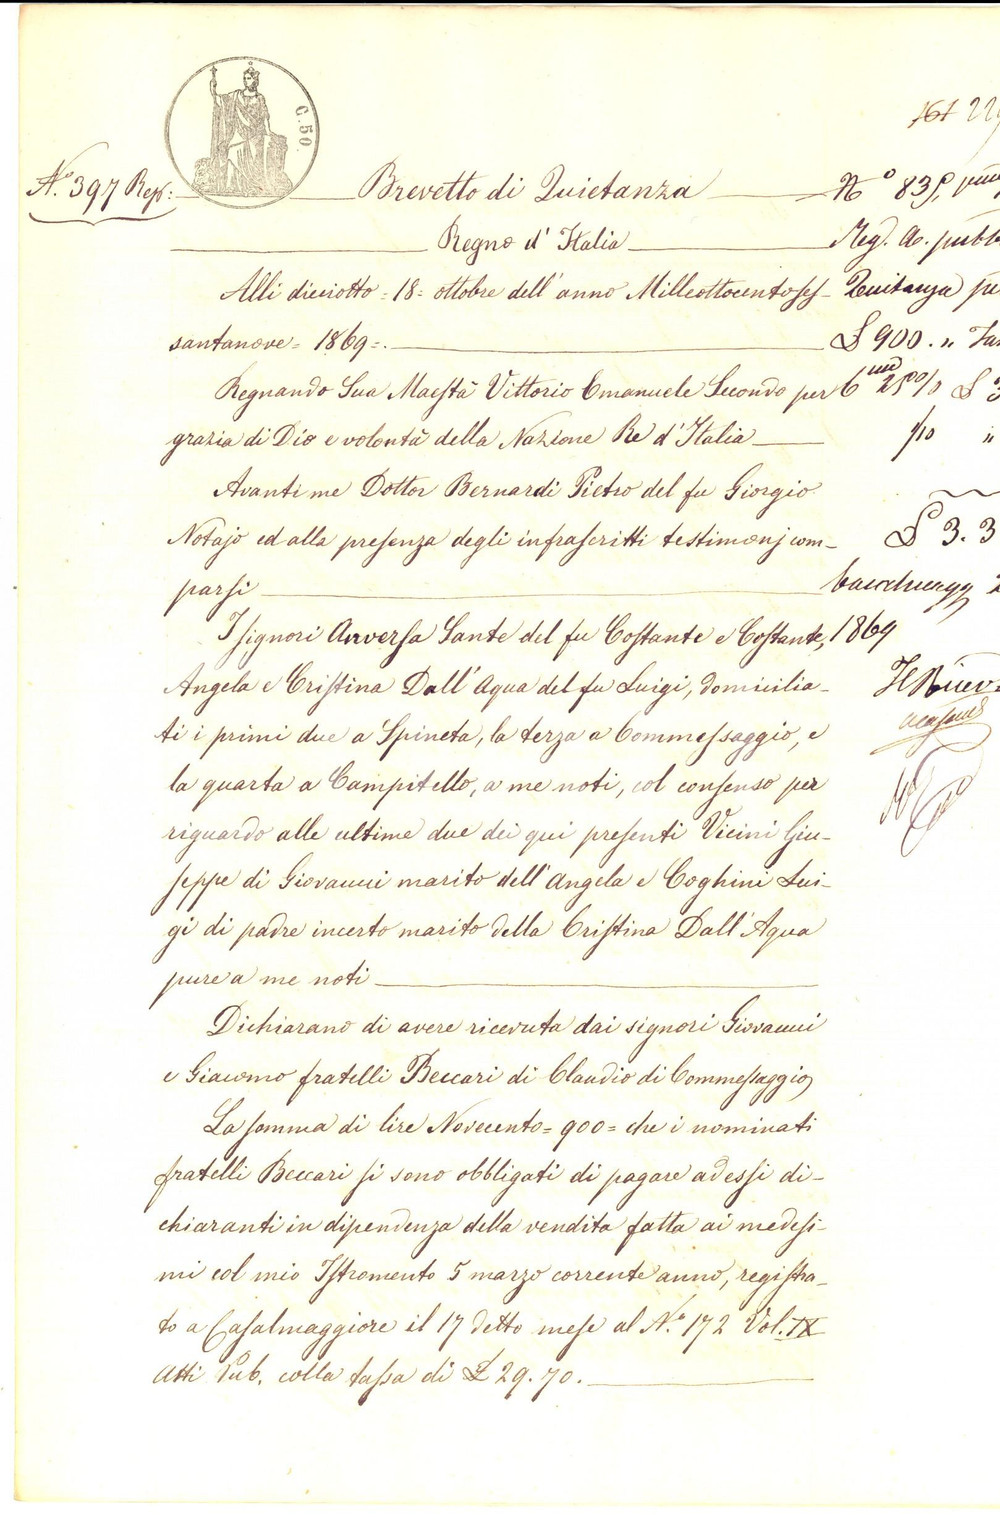 C. 50.
161 229
N.º 397 Rep:
Brevetto di Quietanza
Regno d' Italia
Alli dicciotto = 18 = ottobre dell' anno Milleottocentoses-
santanove = 1869 =.
Regnando Sua Maestà Vittorio Emanuele Secondo per
grazia di Dio e volontà della Nazione Re d' Italia
Avanti me Dottor Bernardi Pietro del fu Giorgio
Notajo ed alla presenza degli infrascritti testimonj com-
parsi
I signori Anversa Sante del fu Costante e Costante,
Angela e Cristina Dall' Aqua del fu Luigi, domicilia-
ti i primi due a Spineta, la terza a Commessaggio, e
la quarta a Campitello, a me noti, col consenso per
riguardo alle ultime due dei qui presenti Vicini Giu-
seppe di Giovanni marito dell' Angela e Coghini Lui-
gi di padre incerto marito della Cristina Dall' Aqua
pure a me noti
Dichiarano di avere ricevuta dai signori Giovanni
e Giacomo fratelli Beccari di Claudio di Commessaggio
La somma di lire Novecento = 900 = che i nominati
fratelli Beccari si sono obbligati di pagare ad essi di-
chiaranti in dipendenza della vendita fatta ai medesi-
mi col mio Istromento 5 marzo corrente anno, registra-
to a Casalmaggiore il 17 detto mese al N.º 172 Vol. IX
Atti Pub. colla tassa di £ 29.70.
Nº 835,
Reg. A. pubb
Quitanza pe
£ 900. " Tas
£ 3
1/10 "
£ 3. 3
1869
Il Ricev.